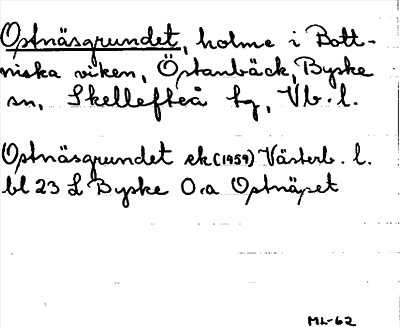 Ostnäsgrundet, holme i Bott-
niska viken, Östanbäck, Byske
sn, Skellefteå tg, Vb. l.
Ostnäsgrundet ek (1959) Västerb. l.
bl 23 L Byske O.a Ostnäset
ML-62